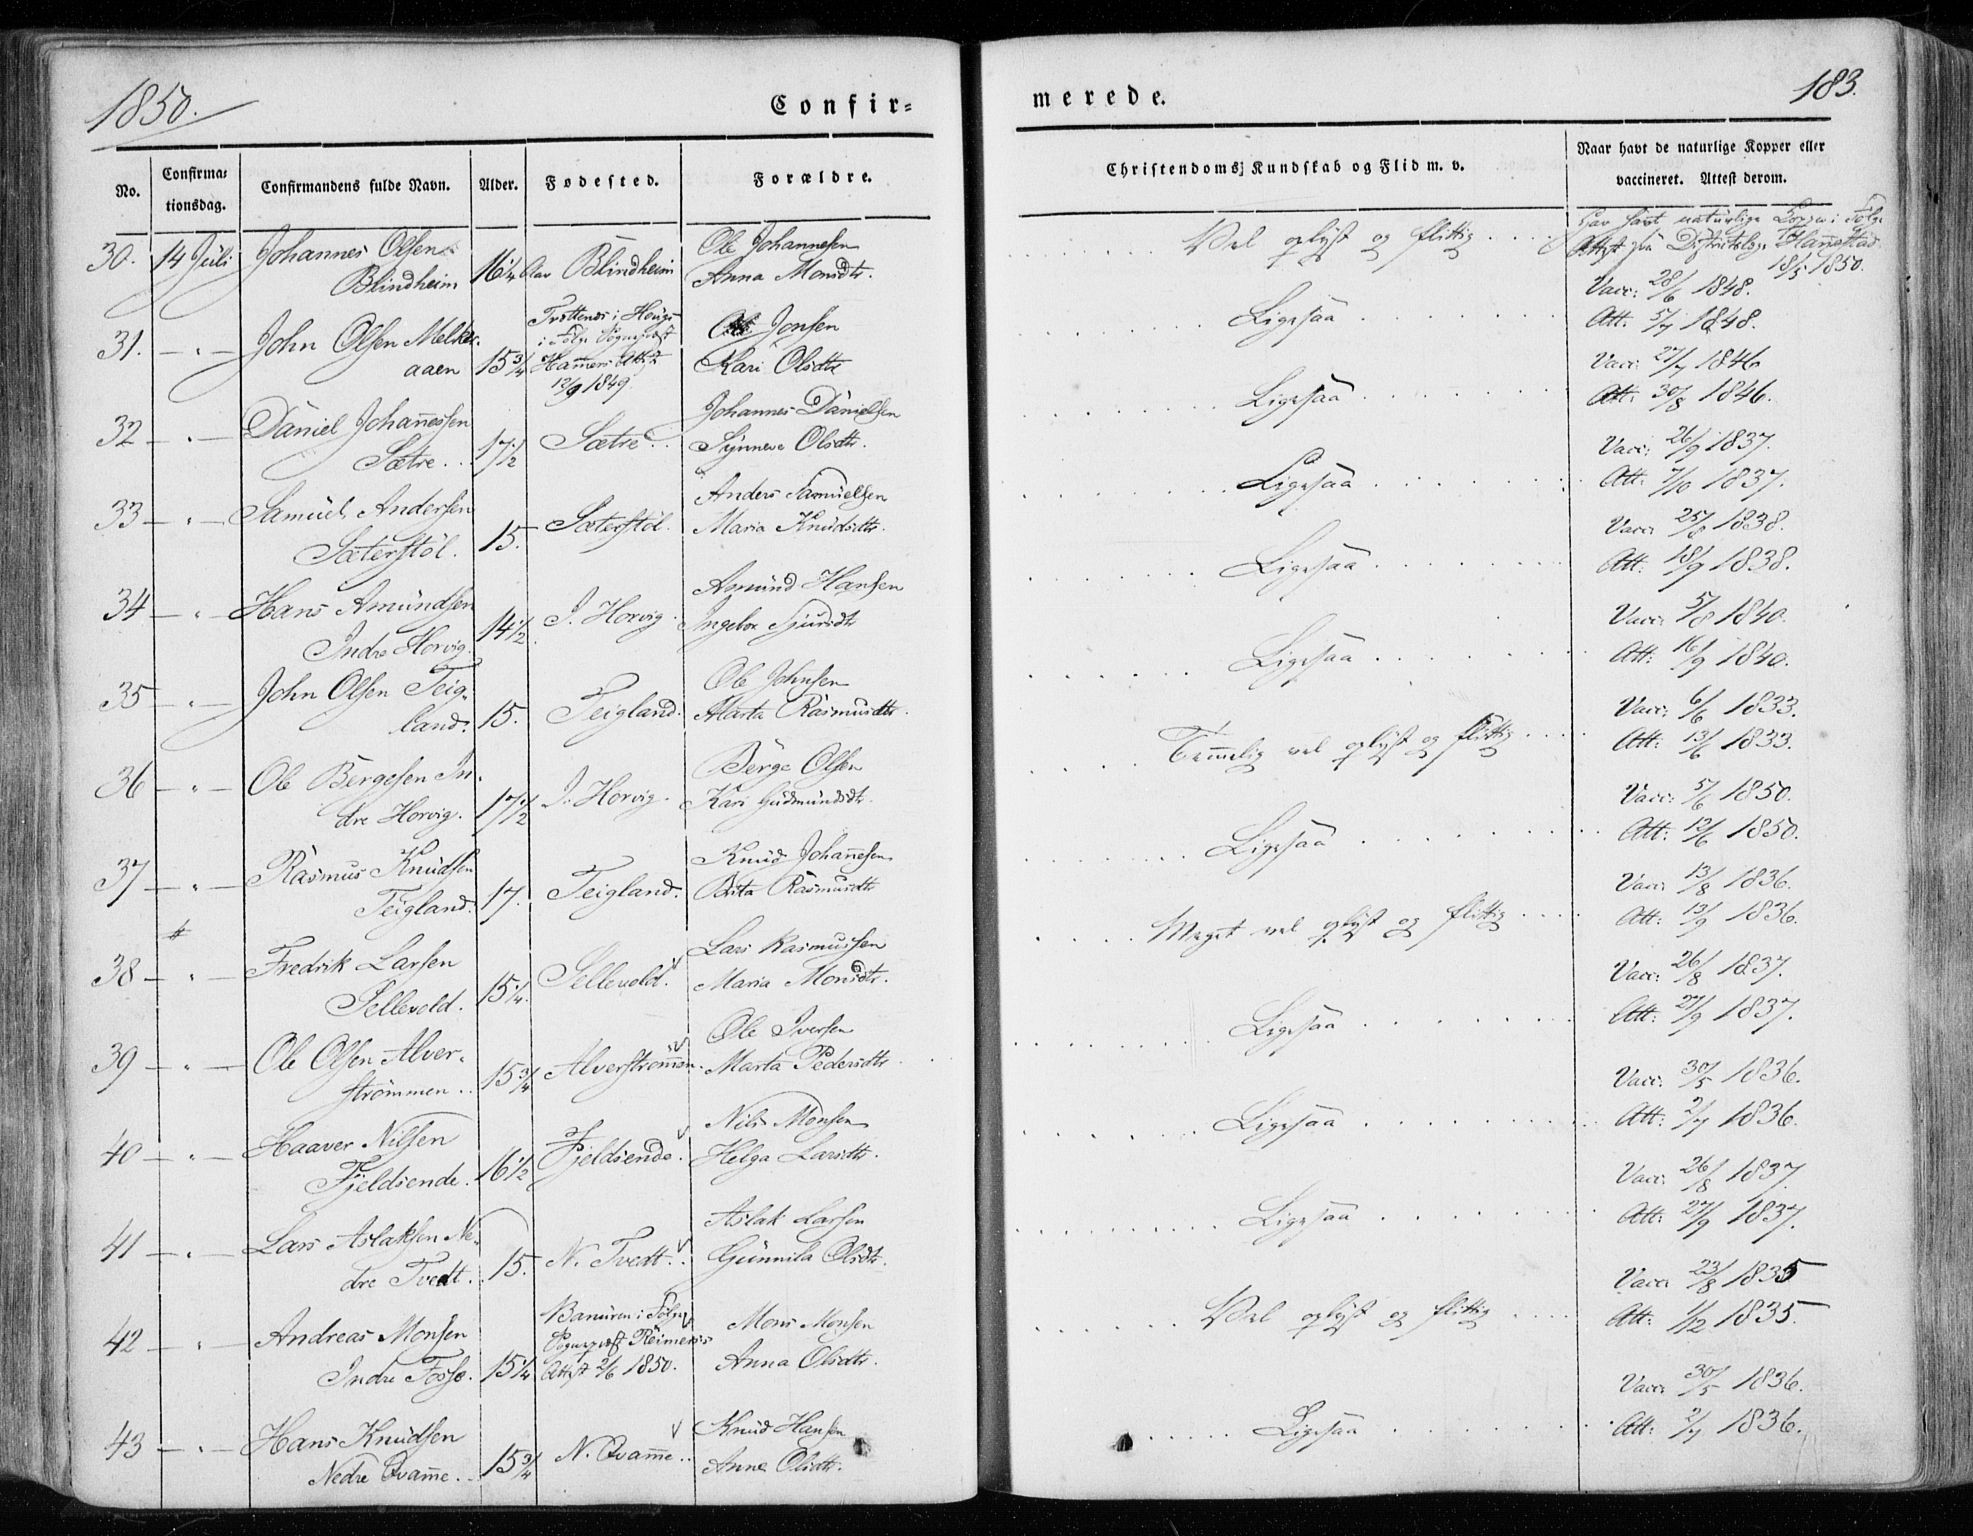 1850.
Confir=
No.
Confirma=
tionsdag.
Confirmandens fulde Navn.
Alder.
Fødested.
Forældre.
30. 14 Juli Johannes Olsen
Blindheim 16 1/4 Aar Blindheim
Ole Johannesen
Anna Monsdtr.
31. — " — John Olsen Melke-
aaen 15 3/4
i Følge Sognepræst
Hammers Attest
12/9 1849.
Ole Jonsen
Kari Olsdtr
32 — " — Daniel Johannessen
Sætre. 17 1/2 Sætre.
Johannes Danielsen
Synneve Olsdtr.
33 — " — Samuel Andersen
Sæterstöl. 15. Sæterstöl.
Anders Samuelsen
Maria Knudsdtr.
34 — " — Hans Amundsen
Indre Horvig. 14 1/2. I. Horvig.
Amund Hansen
Ingebor Sjursdtr
35 — " — John Olsen Teig-
land. 15. Teigland.
Ole Johnsen
Marta Rasmusdtr.
36 — " — Ole Børgesen In-
dre Horvig. 17 1/2 I. Horvig.
Børge Olsen
Kari Gudmundsdtr.
37 — " — Rasmus Knudsen
Teigland. 17. Teigland.
Knud Johannesen
Brita Rasmusdtr
#
38 — " — Fredrik Larsen
Sellevold. 15 1/4. Sellevold.
Lars Rasmussen
Maria Monsdtr.
39 — " — Ole Olsen Alver-
strømmen.. 15 3/4 Alverstrømmen.
Ole Iversen
Marta Pedersdtr
40 — " — Haaver Nilsen
Fjeldsende. 16 1/2 Fjeldsende.
Nils Monsen
Helga Larsdtr.
41 — " — Lars Aslaksen Ne-
dre Tvedt. 15. N. Tvedt.
Aslak Larsen
Gunnila Olsdtr.
42 — " — Andreas Monsen
Indre Fosse. 15 1/4
i Følge
Sognepræst Reimers's
Attest 2/6 1850.
Mons Monsen
Anna Olsdtr.
43 — " — Hans Knudsen
Nedre Qvamme.. 15 3/4 N. Qvamme..
Knud Hansen
Anna Olsdtr.
merede.
183.
Christendoms Kundskab og Flid m. v.
Naar havt de naturlige Kopper eller
vaccineret. Attest derom.
Vel oplyst og flittig
Har havt naturlige Kopper i Følge
Attest fra Districtslæge Hanestad
18/5 1850.
Ligesaa
Vacc: 28/6 1848.
Att. 5/7 1848.
Ligesaa
Vacc: 27/7 1846
Att: 30/8 1846.
Ligesaa
Vacc: 26/9 1837.
Att: 7/10 1837.
Ligesaa
Vacc: 25/8 1838.
Att: 18/9 1838.
Ligesaa
Vacc: 5/8 1840.
Att: 16/9 1840.
Temmelig vel oplyst og flittig
Vacc: 6/6 1833.
Att: 13/6 1833.
Ligesaa
Vacc: 5/6 1850.
Att: 12/6 1850.
Meget vel oplyst og flittig
Vacc: 13/8 1836.
Att: 13/9 1836.
Ligesaa
Vacc: 26/8 1837.
Att: 27/9 1837.
Ligesaa
Vacc: 30/5 1836.
Att: 2/7 1836.
Ligesaa
Vacc: 26/8 1837.
Att: 27/9 1837.
Vel oplyst og flittig
Vacc: 23/8 1835
Att: 1/12 1835.
Ligesaa
Vacc: 30/5 1836.
Att: 2/7 1836.